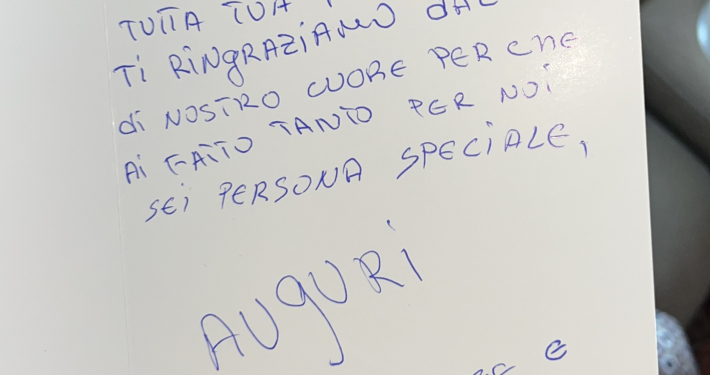 TUTTA TUA
Ti RiNgRAZiAMO dAL
di NOSTRO CUORE PER CHE
Ai FATTO TANTO PER NOi
SEi PERSONA SPECiALE,
AUgURi
e